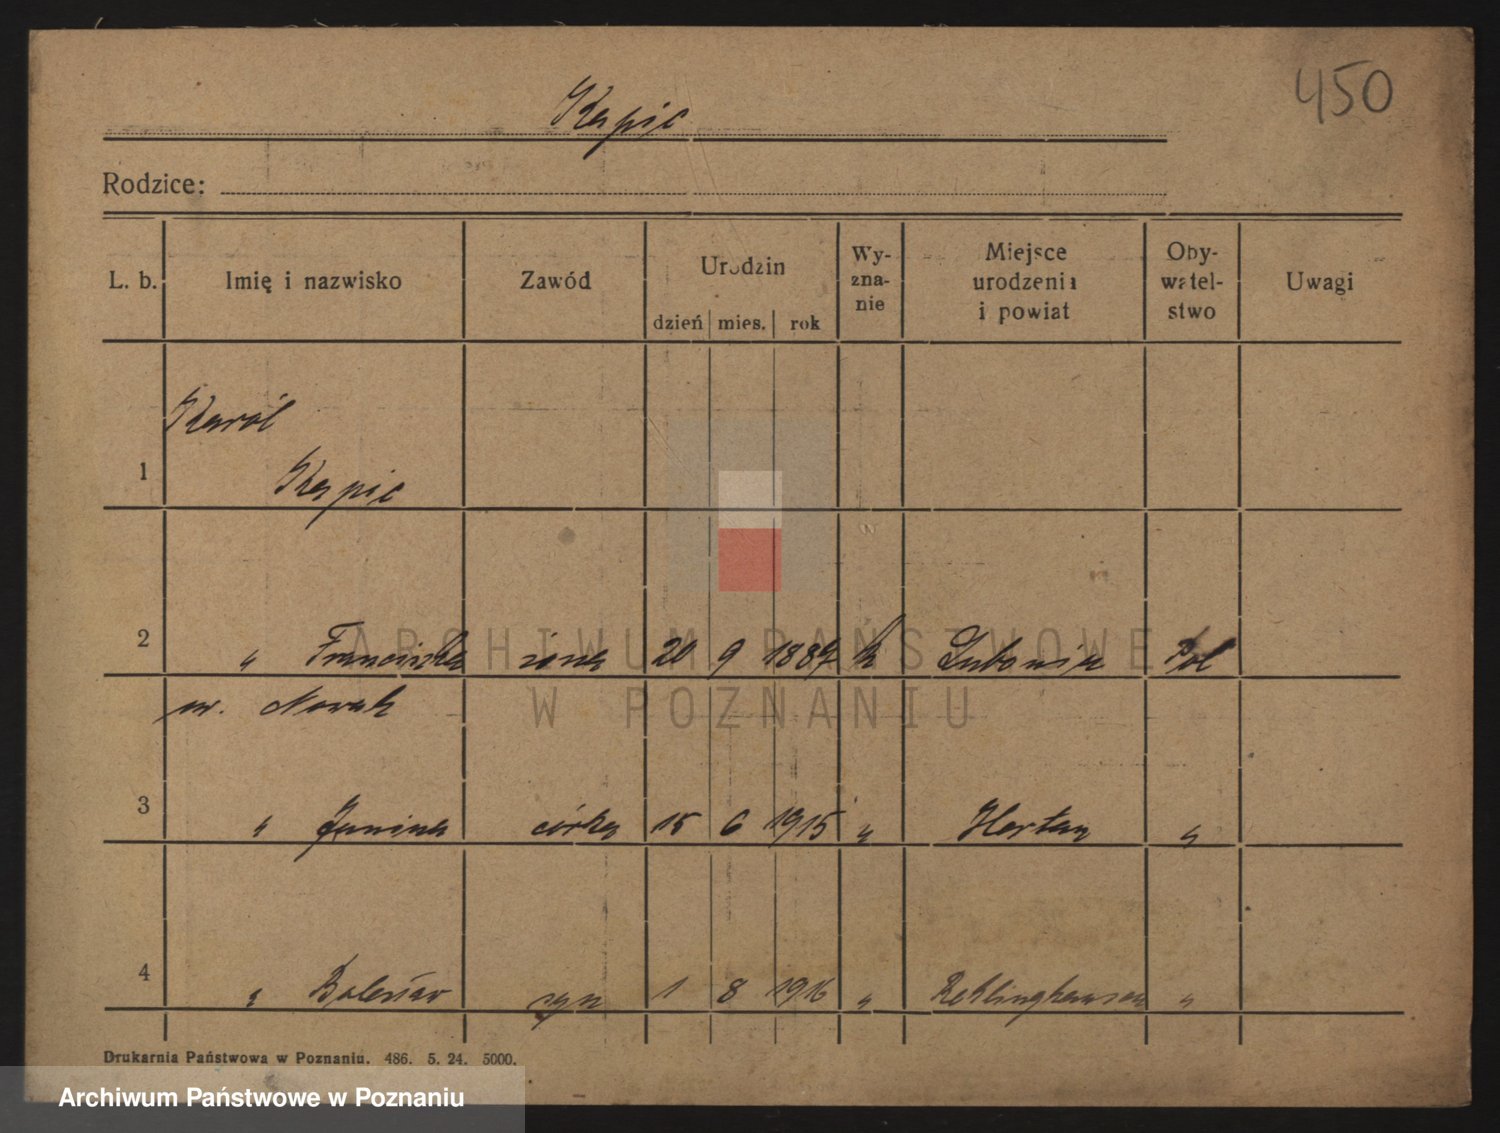 450
Kapic
Rodzice:
L. b. Imię i nazwisko Zawód Urodzin dzień mies. rok Wy-zna-nie Miejsce urodzenia i powiat Oby-watel-stwo Uwagi
Karól
1 Kapic
2 " Franciszka żona 20 9 1887 k Lubonia Pol
ur. Nowak
3 " Janina córka 15 6 1915 " Hertan "
4 " Bolesław syn 1 8 1916 " Reklinghausen "
Drukarnia Państwowa w Poznaniu. 486. 5. 24. 5000.
ARCHIWUM PAŃSTWOWE
W POZNANIU
Archiwum Państwowe w Poznaniu